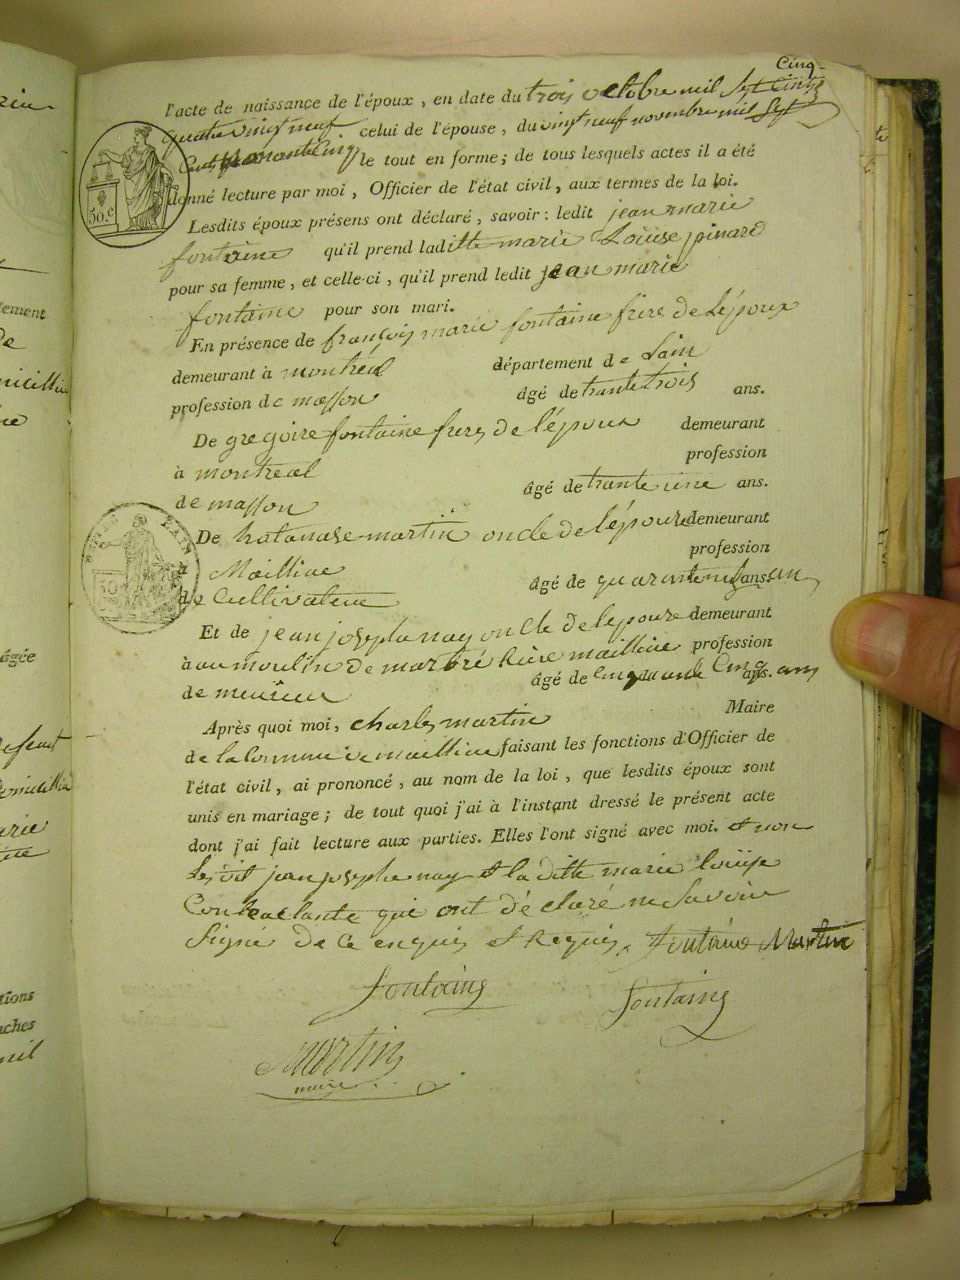 Cinq
l'acte de naissance de l'époux, en date du trois octobre mil Sept Cents
quatre vingt neuf celui de l'épouse, du vingt neuf novembre mil Sept
Cents Cinq le tout en forme; de tous lesquels actes il a été
donné lecture par moi, Officier de l'état civil, aux termes de la loi.
Lesdits époux présens ont déclaré, savoir: ledit jean marie
fontaine qu'il prend laditte marie Louise pinard
pour sa femme, et celle-ci, qu'il prend ledit jean marie
fontaine pour son mari.
En présence de françois marie fontaine frere de L'époux
demeurant à montréal département de Lain
profession de masson âgé de trante trois ans.
De gregoire fontaine frere de l'époux demeurant
à montreal profession
de masson âgé de trante ans.
De hatanase martin oncle de l'épouse demeurant
à Mailliac profession
de Cullivateur âgé de quarante ans
Et de jean josephe nay oncle de lepouse demeurant
à au moulin de mailliac profession
de meunieur âgé de cinquante Cinq ans. ans
Après quoi moi, charles martin Maire
de la Commune de mailliac faisant les fonctions d'Officier de
l'état civil, ai prononcé, au nom de la loi, que lesdits époux sont
unis en mariage; de tout quoi j'ai à l'instant dressé le présent acte
dont j'ai fait lecture aux parties. Elles l'ont signé avec moi. et non
Ledit jean josephe nay et la ditte marie louise
Contractante qui ont déclaré ne Savoir
Signé de Ce enquis et Requis. fontaine Martin
fontaine fontaine
Martin
maire
50.c
âgée